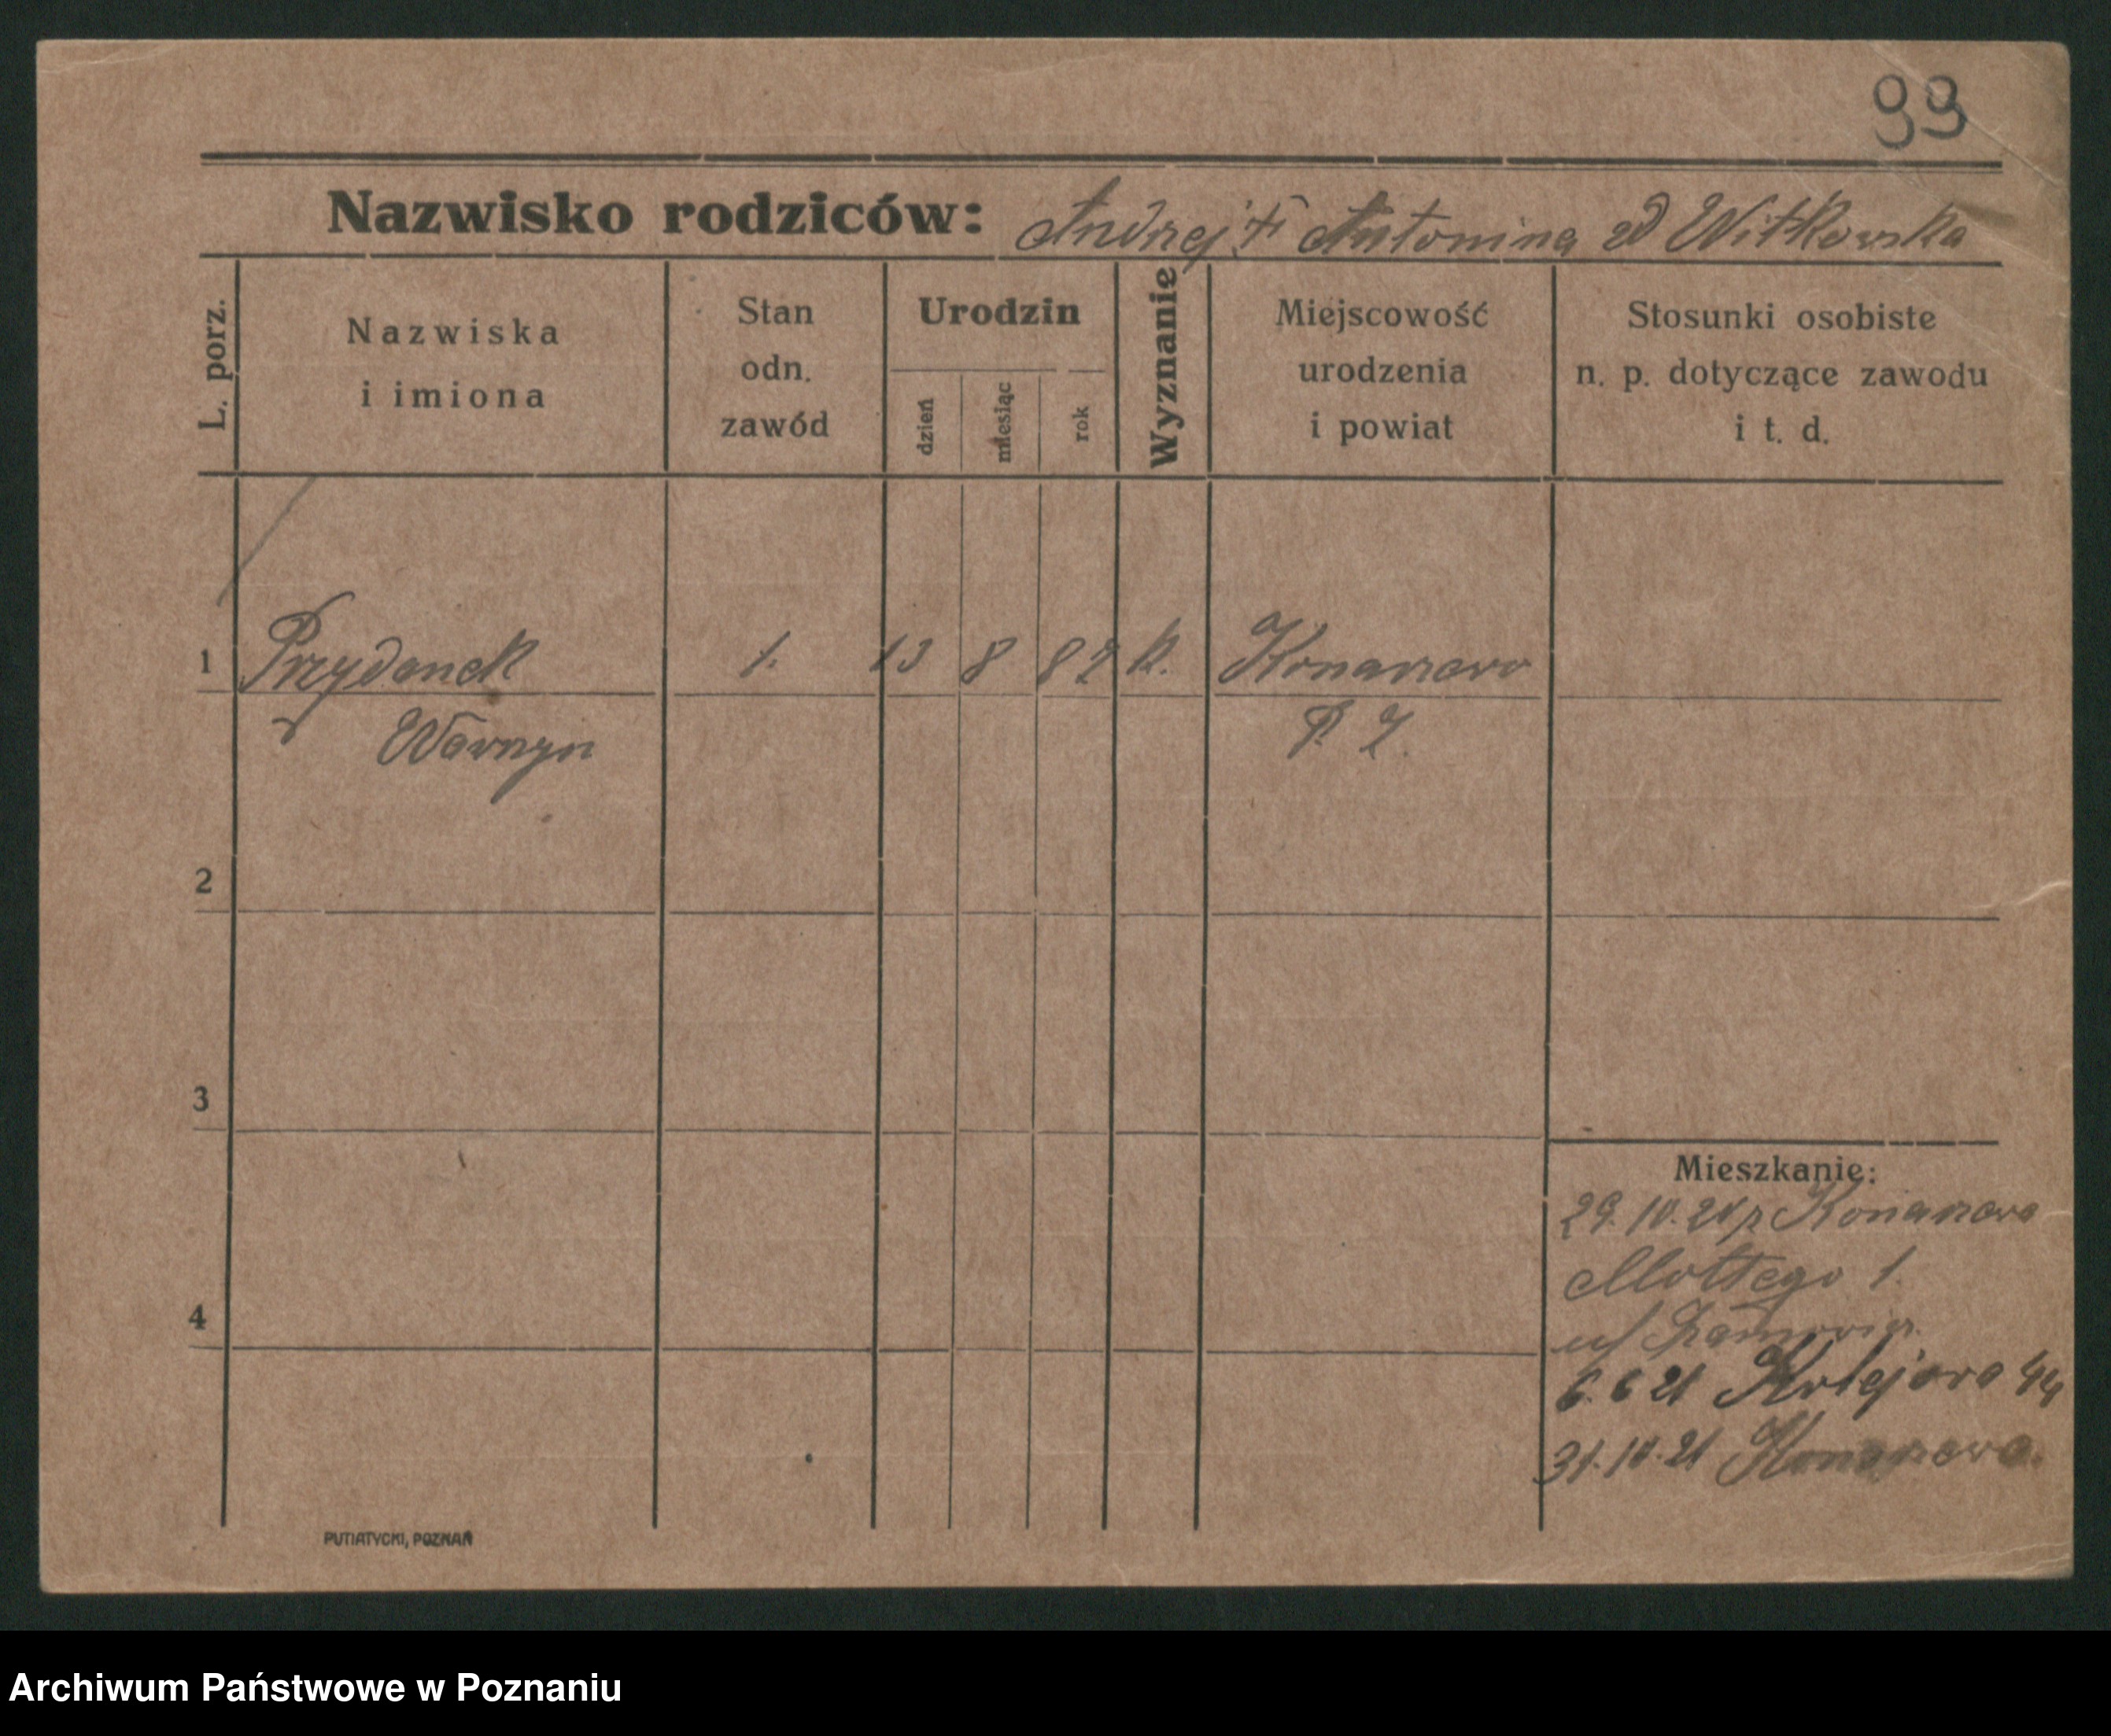 99
Nazwisko rodziców: Andrzej i Antonina zd Witkowska
L. porz.
Nazwiska
i imiona
Stan
odn.
zawód
Urodzin
dzień
miesiąc
rok
Wyznanie
Miejscowość
urodzenia
i powiat
Stosunki osobiste
n. p. dotyczące zawodu
i t. d.
1 Przydanek 1. 13 8 87 k. Konarzewo
Wawrzyn P. Z.
2
3
4
Mieszkanie:
29.10.20 z Konarzewa
Mottego 1.
u/
6.6 21 Kolejowa 44
31.10.21 Konarzewo.
PUTIATYCKI, POZNAŃ
Archiwum Państwowe w Poznaniu